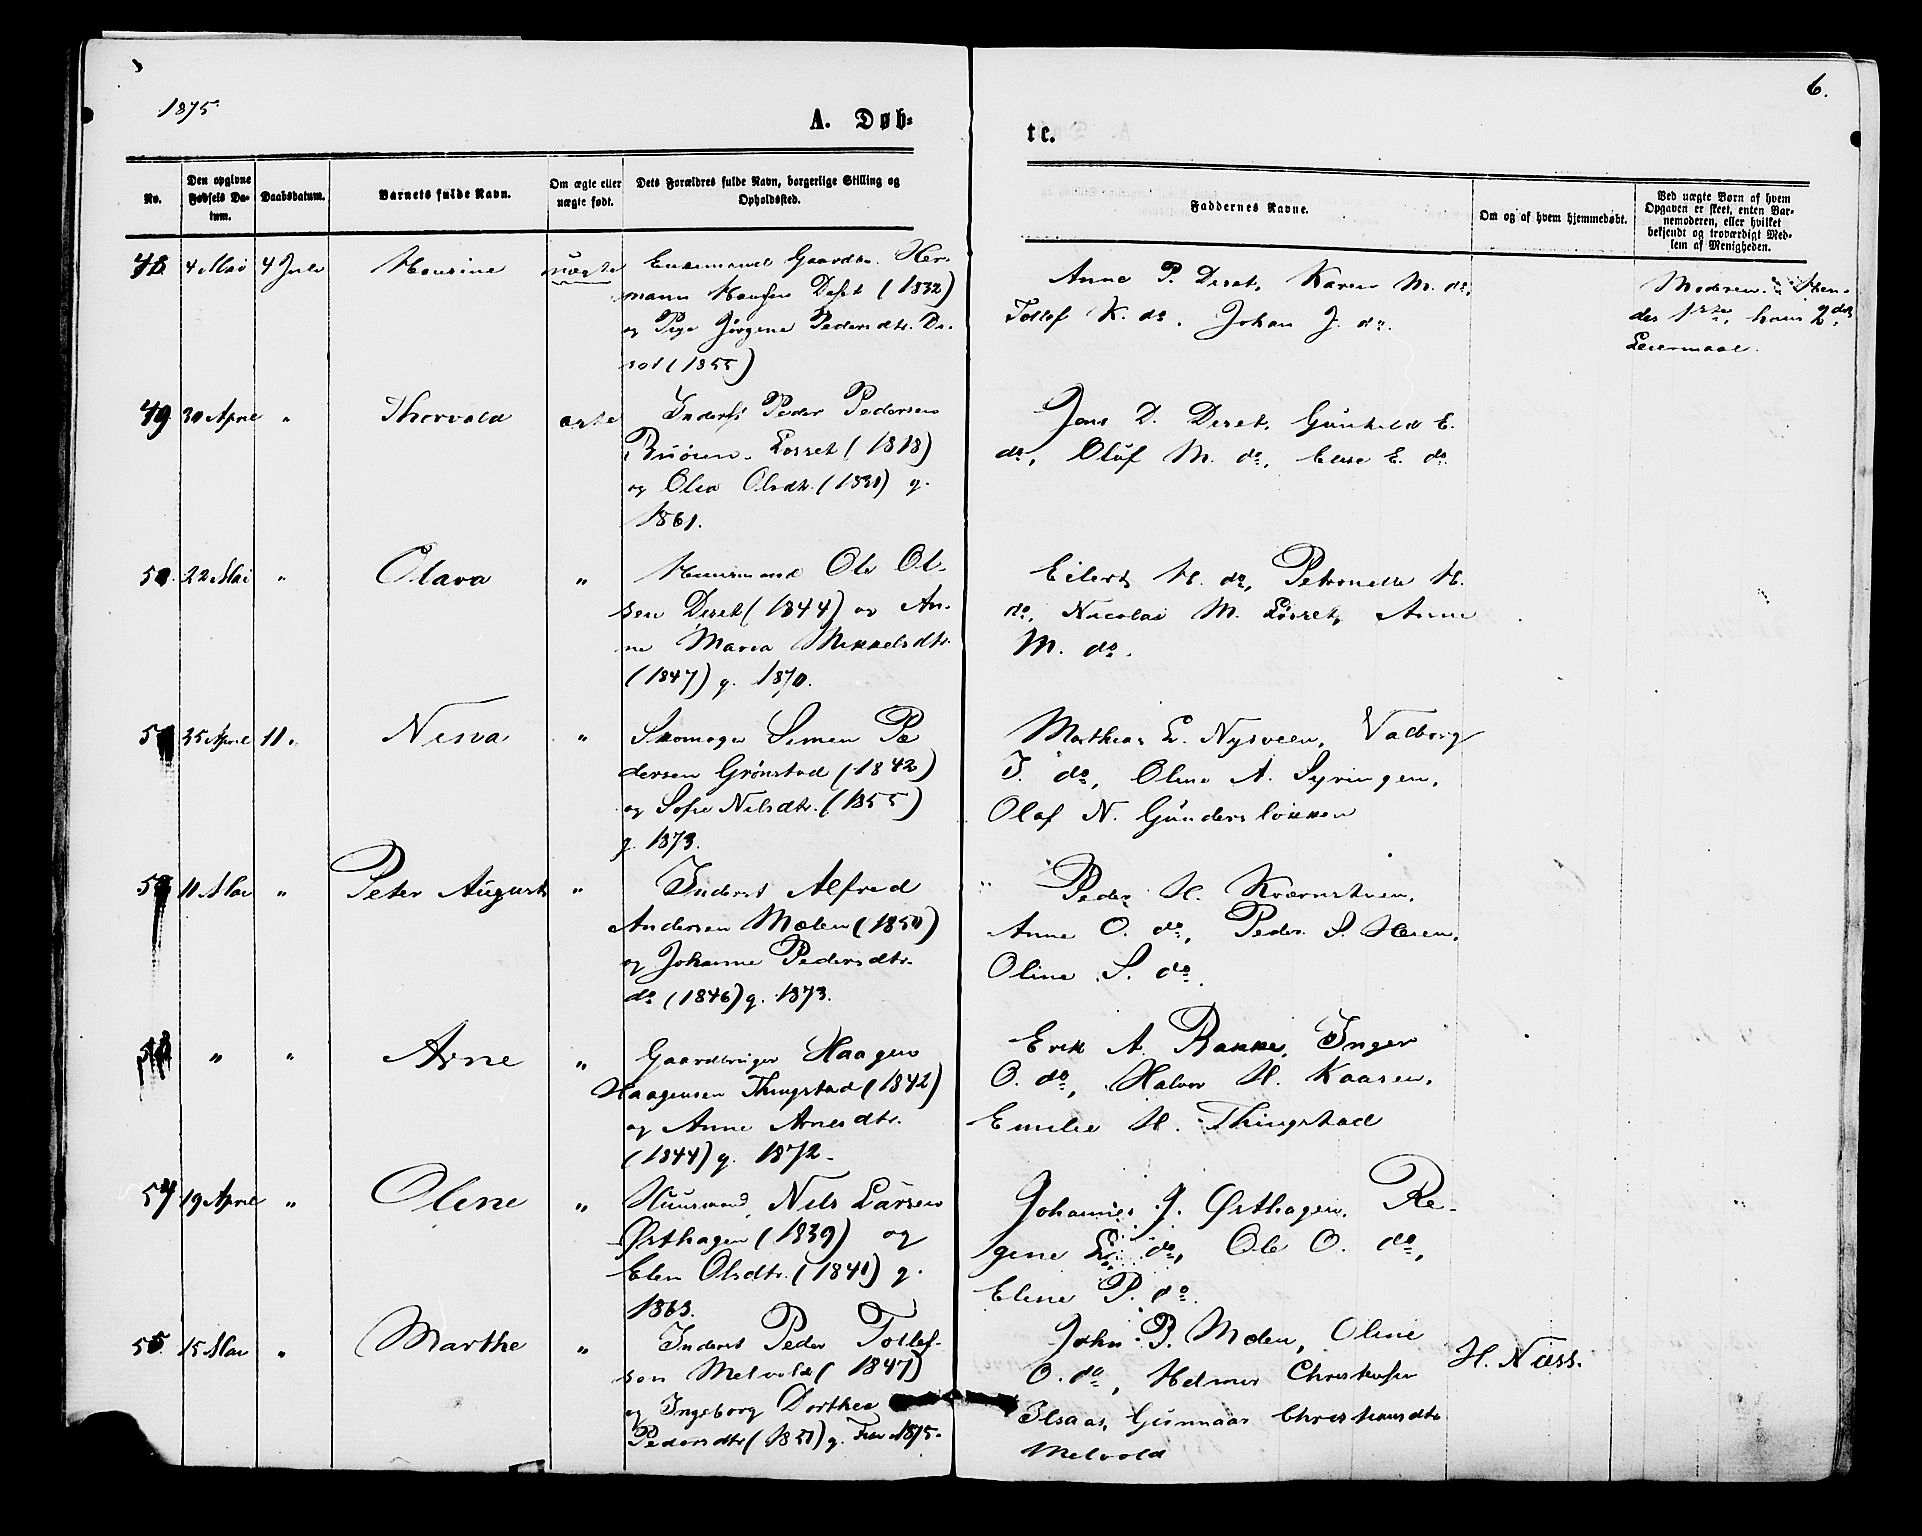 1875
6.
A. Døb=
te.
No.
Den opgivne Fødsels Da-tum.
Daabsdatum.
Barnets fulde Navn.
Om ægte eller uægte født.
Dets Forældres fulde Navn, borgerlige Stilling og Opholdssted.
Faddernes Navne.
Om og af hvem hjemmedøbt.
Ved uægte Børn af hvem Opgaven er skeet, enten Bar-nemoderen, eller hvilket bekjendt og troværdigt Med-lem af Menigheden.
48 4 Mai 4 Juli uægte Gaardbr. Her-
mann Hansen Deset (1832)
og Pige Jørgine Pedersdtr. De-
set (1855)
Anne P. Deset, Karen M. do,
Tollef K. do. Johan J. do.
Moderen. Hen-
des 1ste, hans 2det
Leiermaal.
49 30 April " Thorvald ægte Inderst Peder Pedersen
Losset (1818)
og Olea Olsdtr. (1838) g.
1861.
Jens D. Deset, Gunhild E.
do, Oluf M. do, Else E. do.
50. 22 Mai " Olava " Huusmand Ole Ol-
sen Deset (1844) og An-
ne Maria Mikkelsdtr.
(1847) g. 1870.
Eilert H. do, Petronelle H.
do, Nicolai M. Losset, Anne
M. do.
51 25 April 11. " Skomager Simen Pe
dersen Grønstad (1842)
og Sofie Nilsdtr. (1855)
g. 1873.
Mathias L. Nysveen, Valborg
J. do, Oline A. Syringen,
Olaf N. Gunderslökken
52 11 Mai " Peter August " Inderst Alfred
Andersen Mælen (1850)
og Johanne Pedersdtr.
do (1846) g. 1873.
Peder H. Kværnstuen,
Anne O. do, Peder S. Moen,
Oline S. do.
53 " " Arne " Gaardbruger Haagen
Haagensen Thingstad (1842)
og Anne Arnesdtr.
(1844) g. 1872.
Erik A. Bakke, Inger
O. do, Halvor H. Kaasen,
Emilie H. Thingstad
54 19 April " Oline " Huusmand Nils Larsen
Ørsthagen (1839) og
Elen Olsdtr. (1840) g.
1863.
Johannes J. Ørsthagen, Re-
gine L. do, Ole O. do,
Eline P. do.
55. 15 Mai " Marthe " Inderst Peder Tollef-
sen Melvold (1847)
og Ingeborg Dorthea
Pedersdtr (1851) g. 1875.
John P. Moen, Oline
O. do, Helmer Christofer
Gunnar Christiansdtr
Melvold
H. Næss.